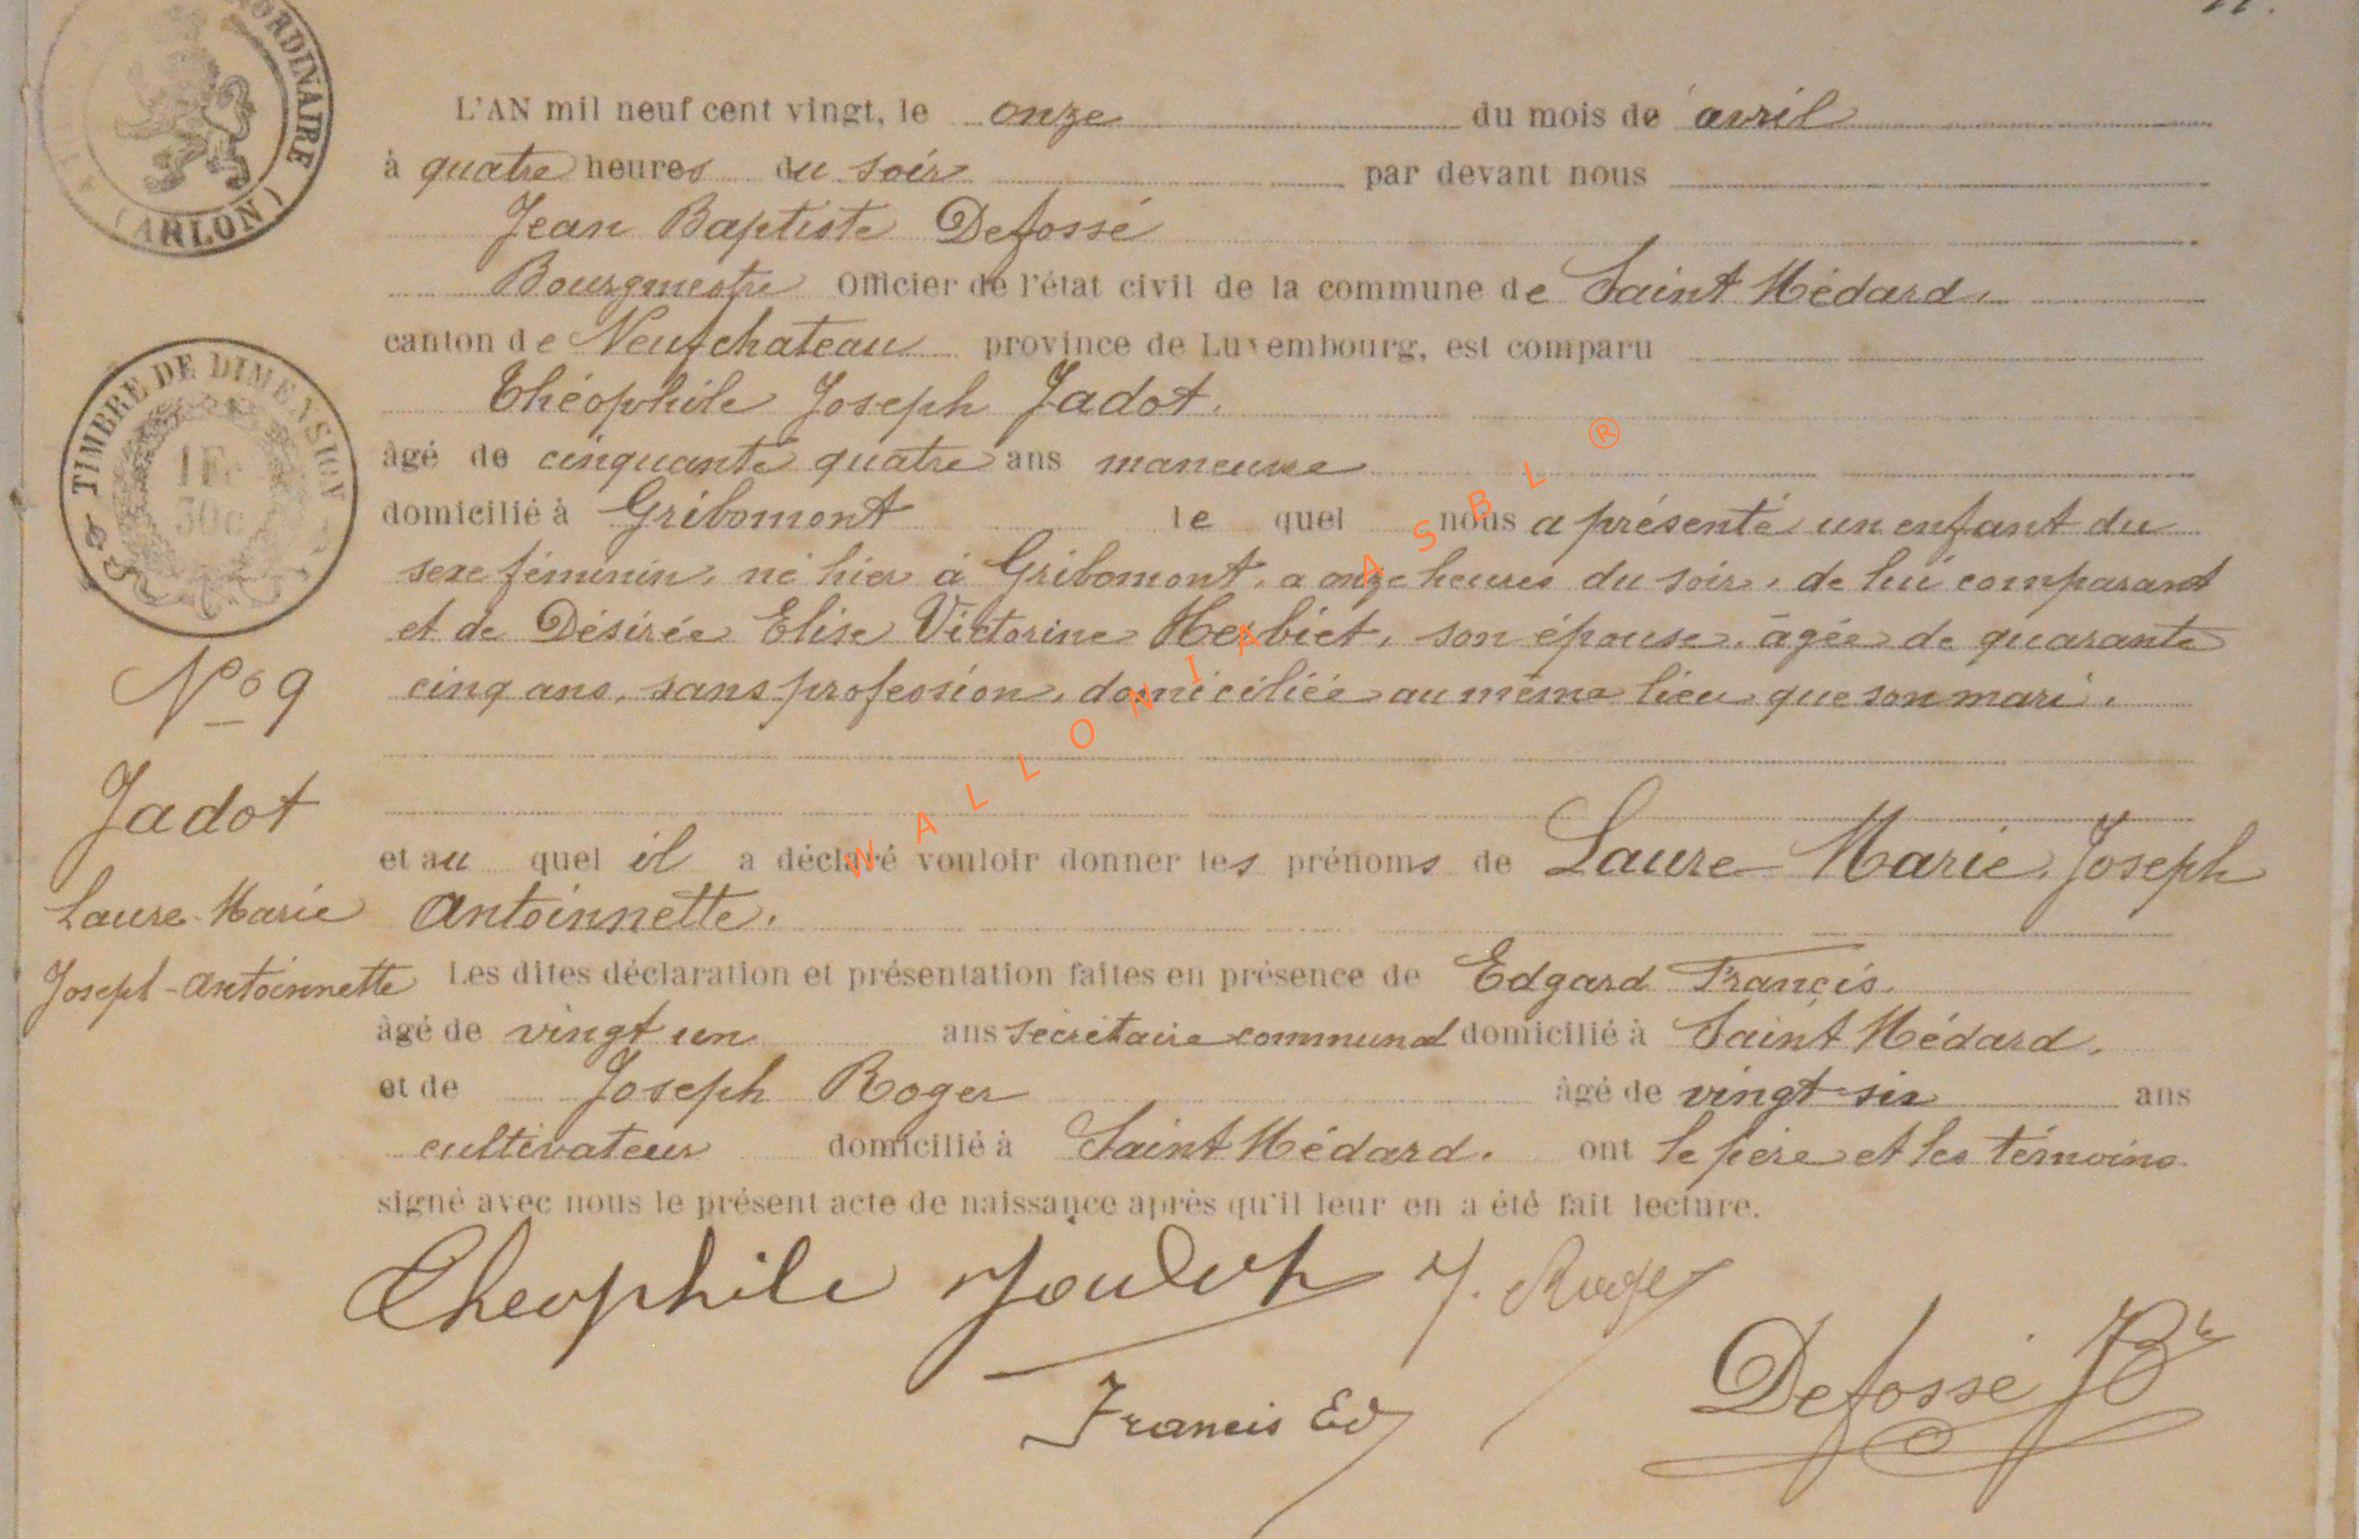 ORDINAIRE
(ARLON)
TIMBRE DE DIMENSION
1 Fr
50c
Nº 9
Jadot
Laure Marie
Joseph-Antoinnette
L'AN mil neuf cent vingt, le onze du mois de avril
à quatre heures du soir par devant nous
Jean Baptiste Defossé
Bourgmestre Officier de l'état civil de la commune de Saint Médard.
canton de Neufchateau province de Luxembourg, est comparu
Théophile Joseph Jadot.
âgé de cinquante quatre ans maneuvre
domicilié à Gribomont le quel nous a présenté un enfant du
sexe féminin, né hier à Gribomont, a onze heures du soir, de lui comparant
et de Désirée Elise Victorine Herbiet, son épouse, âgée de quarante
cinq ans, sans profession, domiciliée au même lieu que son mari.
et au quel il a déclaré vouloir donner les prénoms de Laure Marie Joseph
Antoinnette.
Les dites déclaration et présentation faites en présence de Edgard Françis.
âgé de vingt un ans secrétaire communal domicilié à Saint Médard.
et de Joseph Roger âgé de vingt-six ans
cultivateur domicilié à Saint Médard. ont le père et les témoins
signé avec nous le présent acte de naissance après qu'il leur en a été fait lecture.
Theophile Jadot J. Roger
Francis Ed
Defossé JBte
WALLONIA ASBL ®